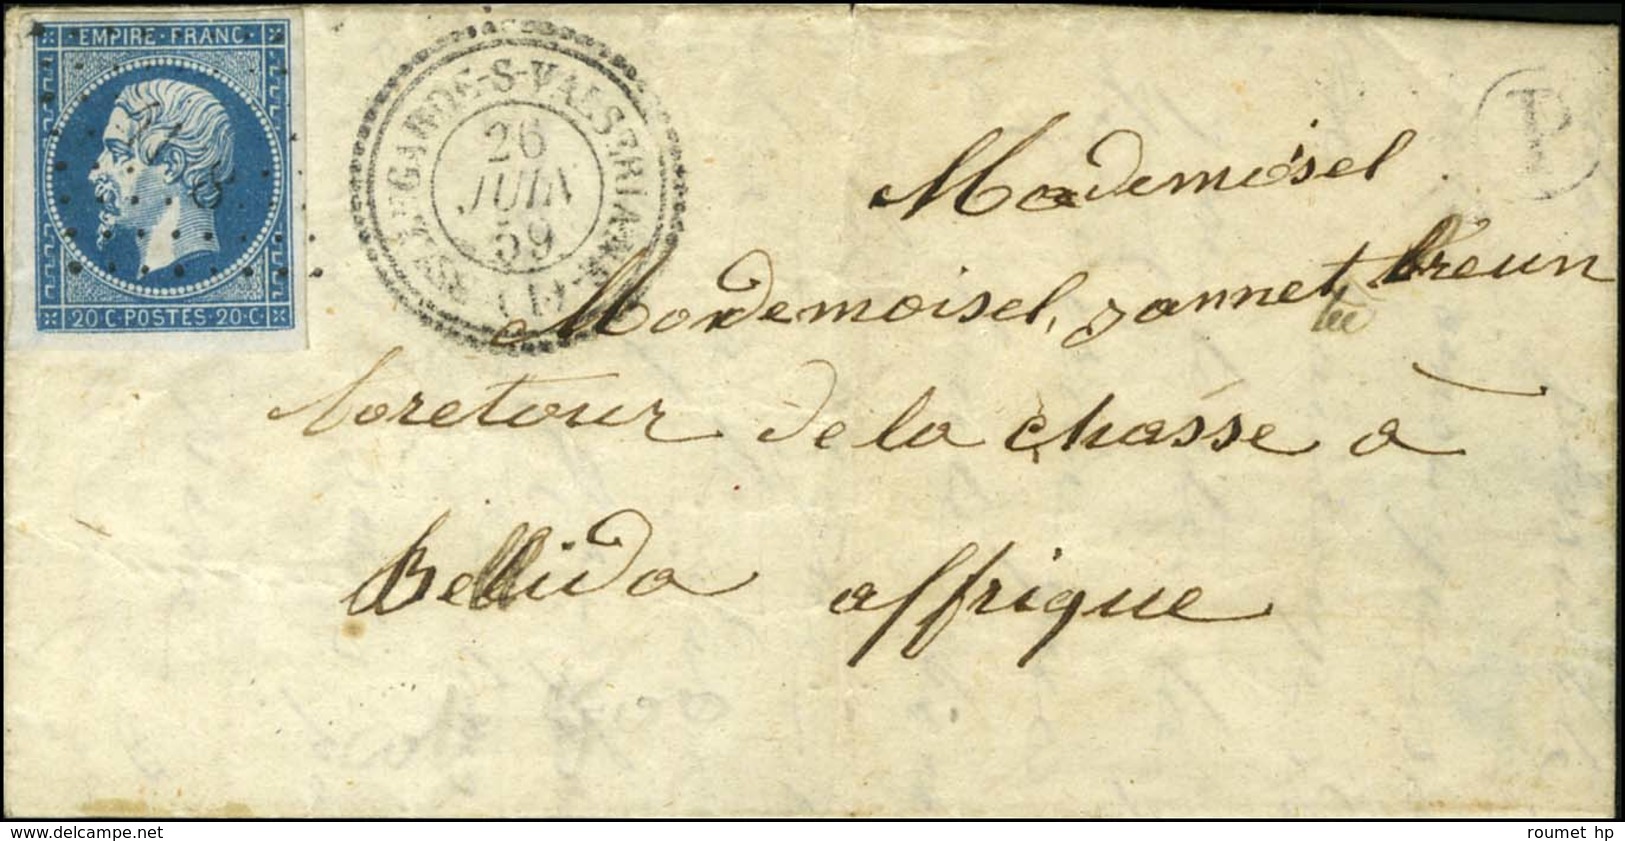 EMPIRE·FRANC·
20·C·POSTES·20·C·
BELLEGARDE-S-VALSERIANE (1)
26
JUIN
59
Mademoisel
Mademoisel, zannet breun
toretour de la chasse a
Bellida affrique
delcampe.net
roumet hp